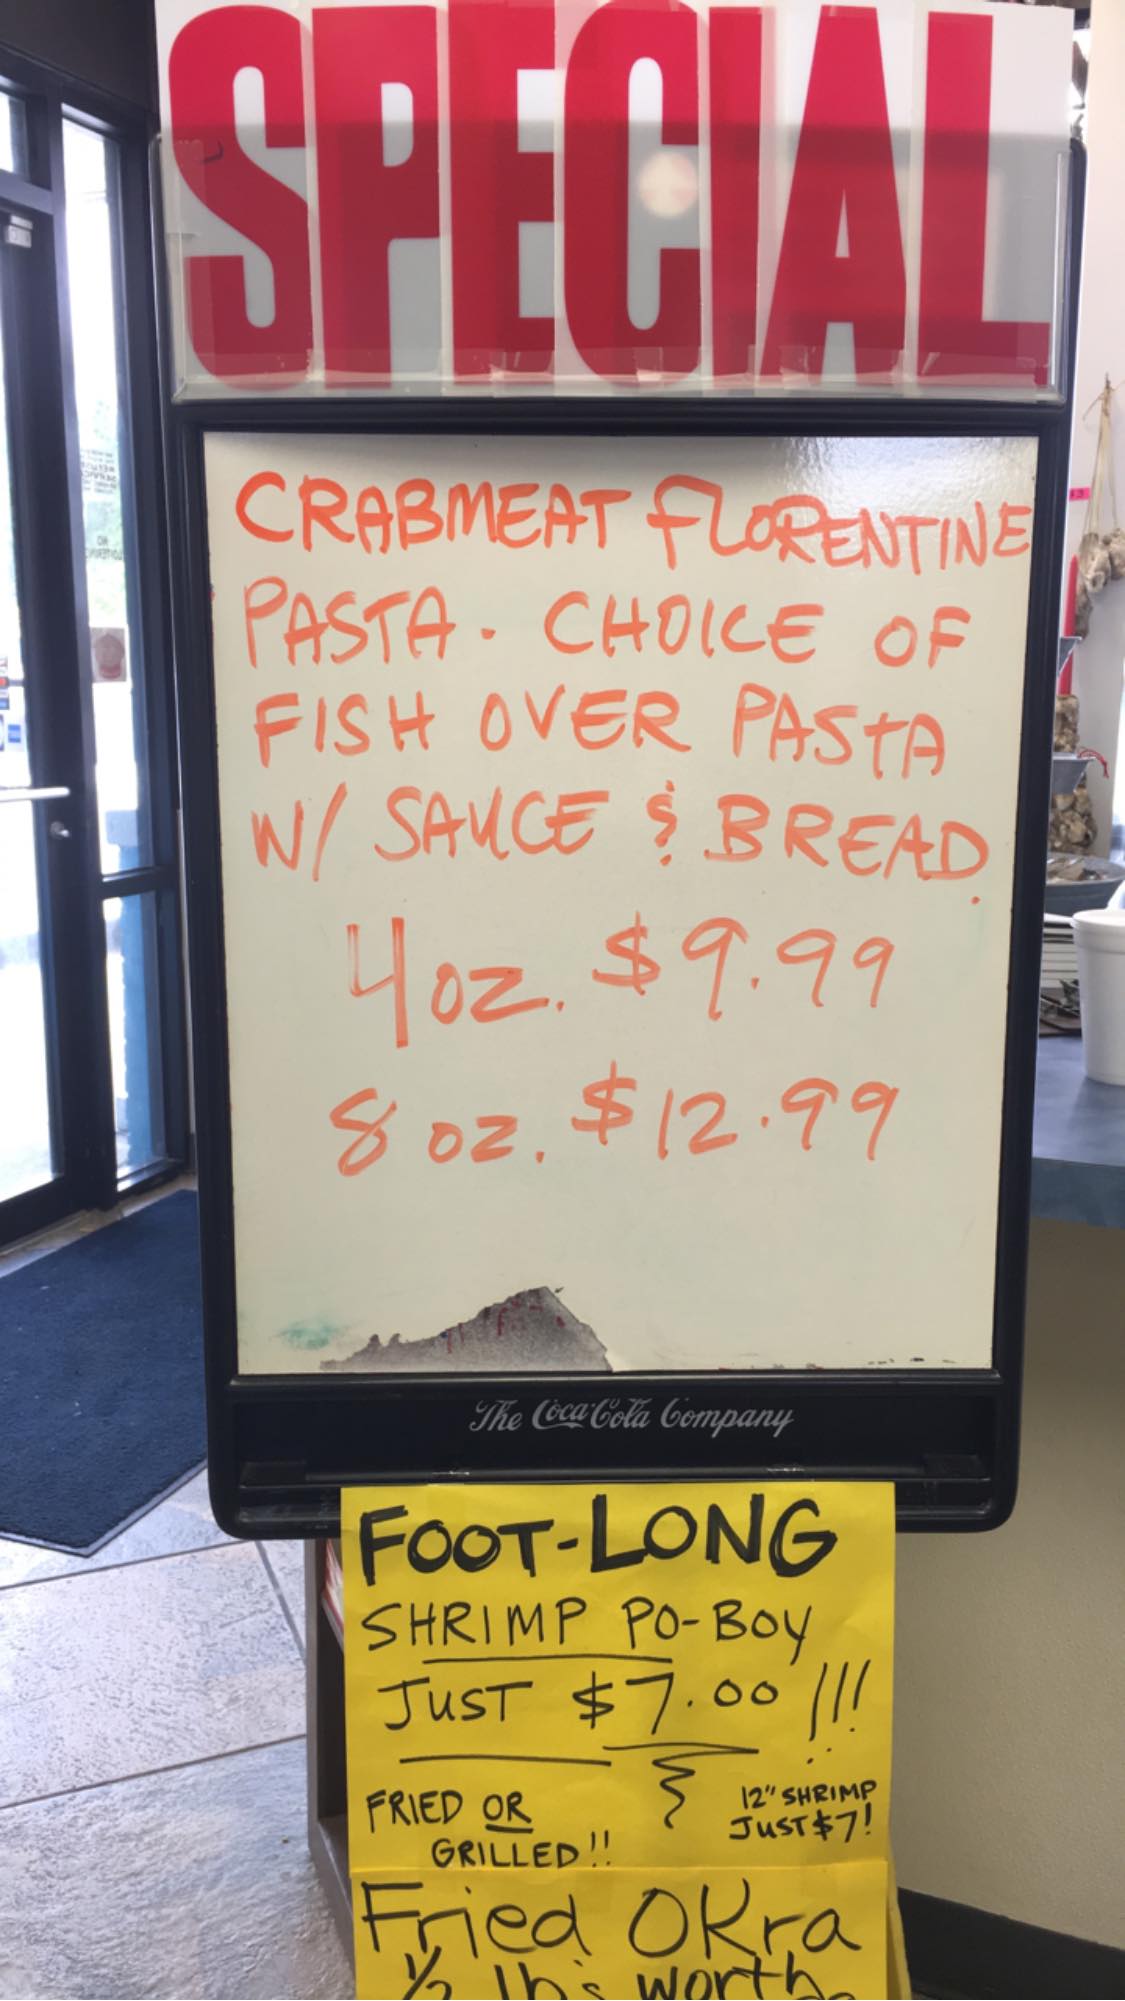 SPECIAL
CRABMEAT FLORENTINE
PASTA. CHOICE OF
FISH OVER PASTA
W/ SAUCE & BREAD.
4 oz. $9.99
8 oz. $12.99
The Coca-Cola Company
FOOT-LONG
SHRIMP PO-BOY
JUST $7.00 !!!
FRIED OR
GRILLED!!
12" SHRIMP
JUST $7!
Fried OKra
1/2 lb's worth